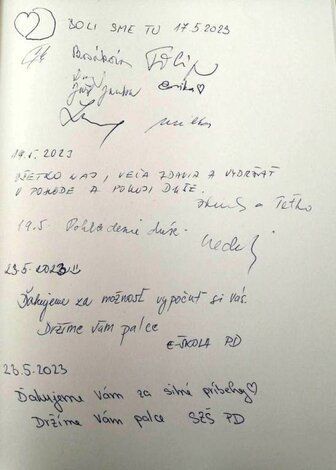 2 BOLI SME TU 17.5.2023
Bosáková Filip
erika♡
19.5.2023
VŠETKO NAJ, VEĽA ZDAVIA A VYDRŽAŤ
V POHODE A POKOJI DUŠE.
a Teťko
19.5. Pohladenie duše.
23.5.2023
Ďakujeme za možnosť vypočuť si vás.
Držíme vám palce
E-ŠKOLA PD
23.5.2023
Ďakujeme vám za silné príbehy♡
Držíme vám palce SZŠ PD